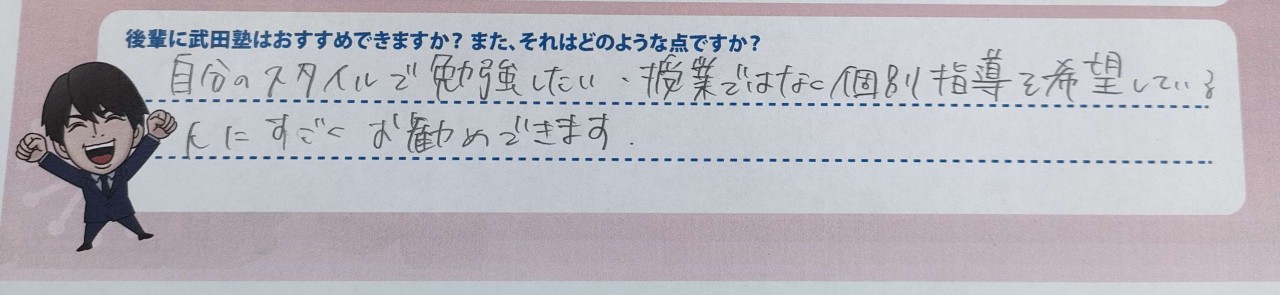 後輩に武田塾はおすすめできますか？また、それはどのような点ですか？
自分のスタイルで勉強したい、授業ではなく個別指導を希望している
人にすごくお勧めできます.